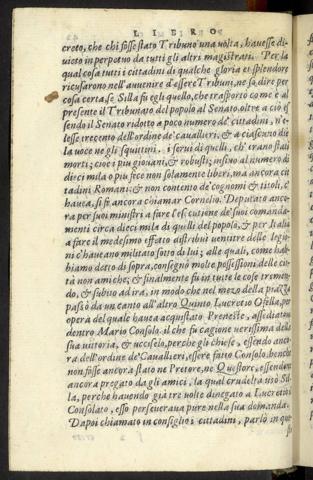 LIBRO
creto, che chi fosse stato Tribuno una volta, havesse di-
vieto in perpetuo da tutti gli altri magistrati. Per la
qual cosa tutti i cittadini di qualche gloria et splendore
ricusarono nell'avvenire d'essere Tribuni, ne so dire per
cosa certa, se Silla fu egli quello, che trasportò come è al
presente il Tribunato del popolo al Senato. oltre a ciò es
sendo il Senato ridotto a poco numero de' cittadini, v'e-
lesse trecento dell'ordine de' cavallieri, & a ciascuno diè
la voce ne gli squittini. i servi di quelli, ch'erano stati
morti; cioè i piu giovani, & robusti; insino al numero di
dieci mila o piu fece non solamente liberi, ma ancora cit
tadini Romani: & non contento de' cognomi & titoli, c'
havea, si fe ancora chiamar Cornelio. Deputato anco-
ra per suoi ministri a fare l'essecutione de' suoi comanda-
menti circa dieci mila di quelli del popolo, & per Italia
a fare il medesimo effetto distribuì ventitre delle legio-
ni c'haveano militato sotto di lui; alle quali, come hab-
biamo detto di sopra, consegnò molte possessioni, delle cit-
tà non amiche; & finalmente fu in tutte le cose tremen-
do, & subito ad ira, in modo che nel mezo della piazza
passò da un canto all'altro Quinto Lucretio Ofella, per
opera del quale havea acquistato Preneste, assediatovi
dentro Mario Consolo. il che fu cagione verissima della
sua vittoria, & uccisclo, perche gli chiese, essendo anco-
ra dell'ordine de' Cavallieri, essere fatto Consolo, benche
non fosse ancora stato ne Pretore, ne Questore, essendone
ancora pregato da gli amici, la qual crudeltà usò Sil-
la, perche havendo già tre volte dinegato a Lucretio il
Consolato, esso perseverava pure nella sua domanda.
Dapoi chiamato in consiglio i cittadini, parlò in que